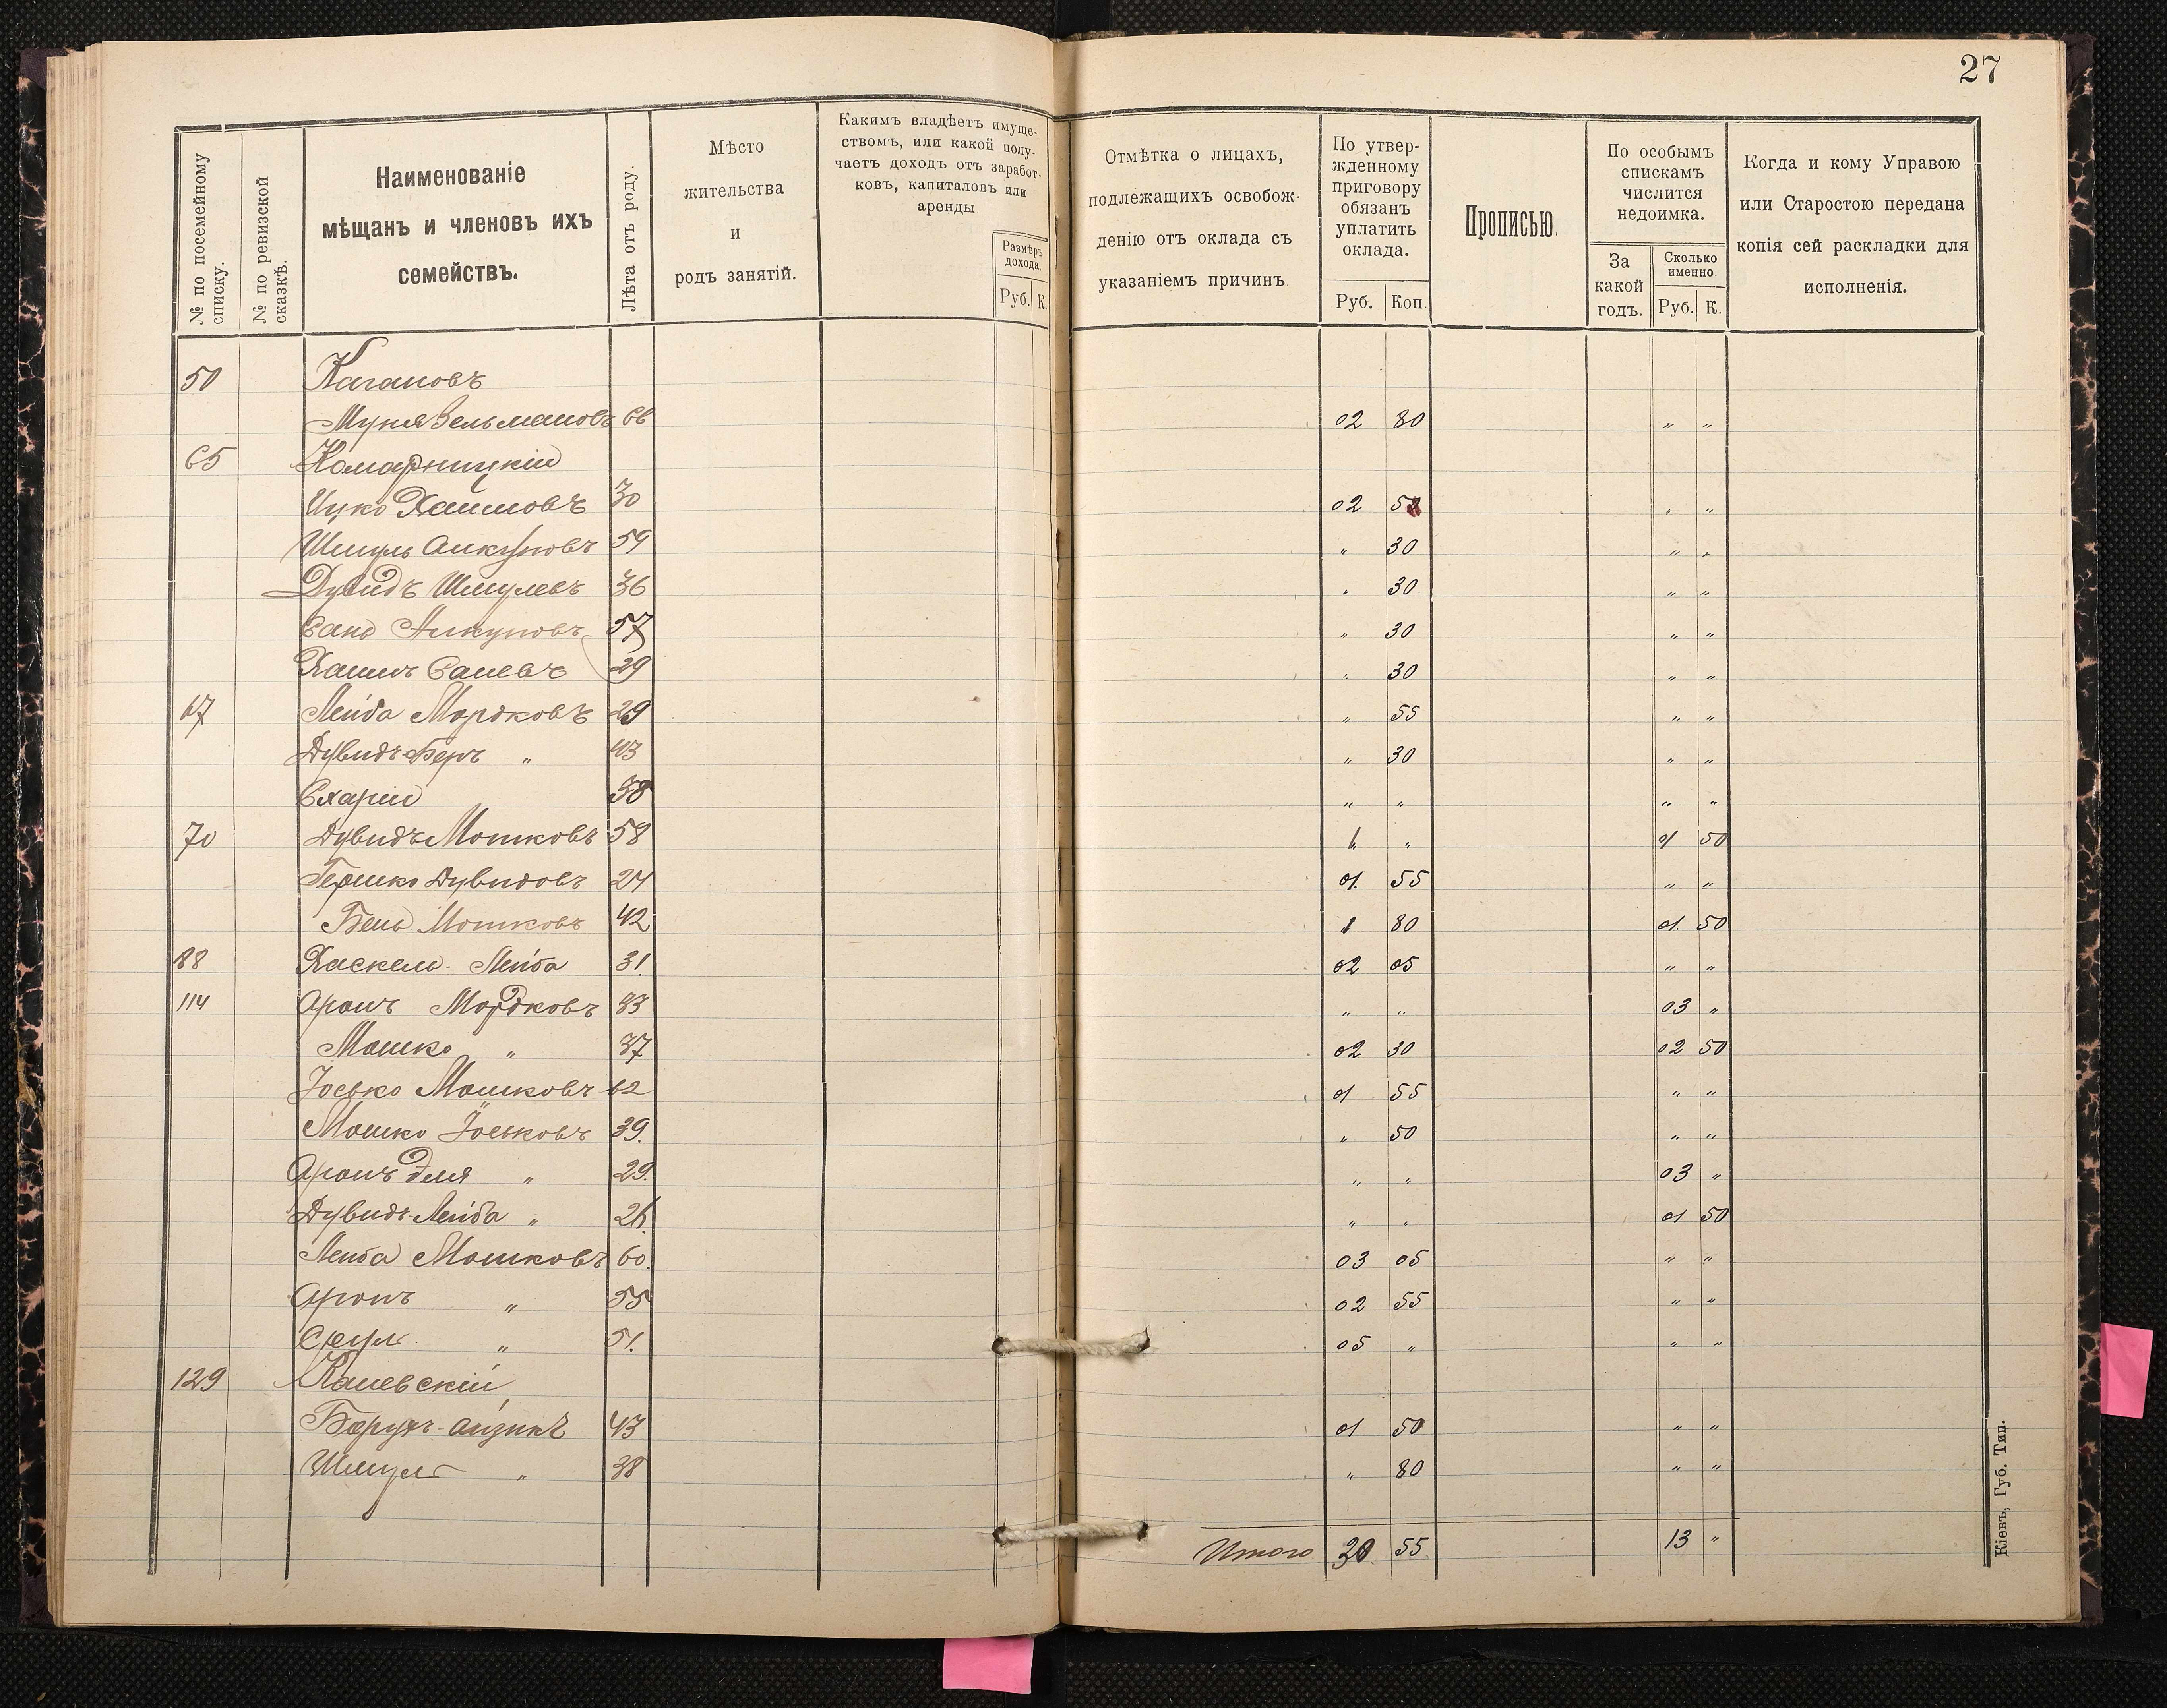 27
№ по посемейному списку.
№ по ревизской сказкѣ.
Наименованіе
мѣщанъ и членовъ ихъ
семействъ.
Лѣта отъ роду.
Мѣсто
жительства
и
родъ занятій.
Какимъ владѣетъ имуще-
ствомъ, или какой полу-
чаетъ доходъ отъ заработ-
ковъ, капиталовъ или
аренды
Размѣръ
дохода.
Руб. К.
Отмѣтка о лицахъ,
подлежащихъ освобож-
денію отъ оклада съ
указаніемъ причинъ.
По утвер-
жденному
приговору
обязанъ
уплатить
оклада.
Руб. Коп.
Прописью.
По особымъ
спискамъ
числится
недоимка.
За
какой
годъ.
Сколько
именно.
Руб. К.
Когда и кому Управою
или Старостою передана
копія сей раскладки для
исполненія.
50 Кагановъ
Муня Зельмановъ 66 02 80 " "
65 Комарницкій
Ицко Хаимовъ 30 02 58 " "
Шмуль 59 " 30 " "
Дувидъ Шмулевъ 36 " 30 " "
57 " 30 " "
Хаимъ 29 " 30 " "
67 Лейба Мордковъ 29 " 55 " "
Дувидъ-Беръ " 43 " 30 " "
Схарій 38 " " " "
70 Дувидъ Мошковъ 58 1 " 01 50
Гершко Дувидовъ 24 01. 55 " "
Мошковъ 42 1 80 01. 50
88 Хаскель-Лейба 31. 02 05 " "
114 Аронъ Мордковъ 33 " " 03 "
Мошко " 37 02 30 02 50
Іосько Мошковъ 62 01 55 " "
Мошко Іоськовъ 39. " 50 " "
Аронъ Эля " 29. " " 03 "
Дувидъ-Лейба " 26. " " 01 50
Лейба Мошковъ 60. 03 05 " "
Аронъ " 55 02 55 " "
Сруль " 51. 05 " " "
129 Каневскій
Борухъ-Айзикъ 43 01 50 " "
Шмуль " 38 " 80 " "
Итого 30 55 13 "
Кіевъ, Губ. Тип.